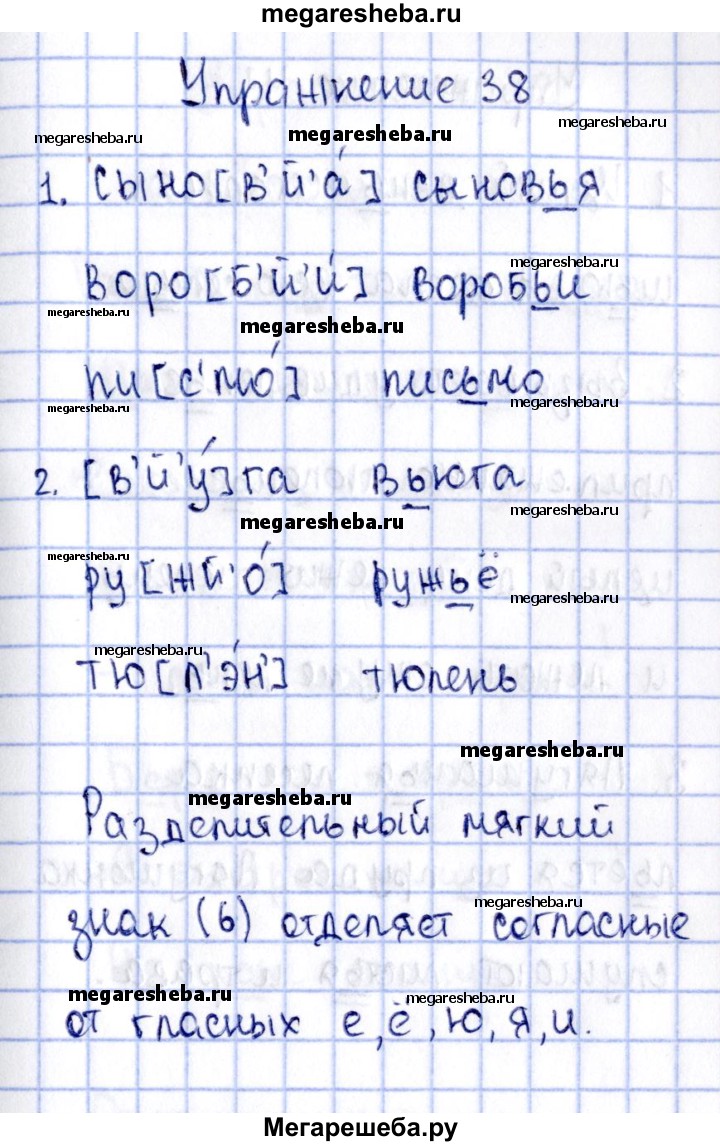 megaresheba.ru
Упражнение 38
megaresheba.ru
megaresheba.ru
megaresheba.ru
1. сыно[в'й'а́] сыновья
megaresheba.ru
воро[б'й'и́] воробьи
megaresheba.ru
megaresheba.ru
пи[с'мо́] письмо
megaresheba.ru
megaresheba.ru
2. [в'й'у́]га вьюга
megaresheba.ru
megaresheba.ru
megaresheba.ru
ру[жй'о́] ружьё
megaresheba.ru
megaresheba.ru
тю[л'э́н'] тюлень
megaresheba.ru
megaresheba.ru
Разделительный мягкий
megaresheba.ru
знак (ь) отделяет согласные
megaresheba.ru
megaresheba.ru
от гласных е, ё, ю, я, и.
Мегарешеба.ру